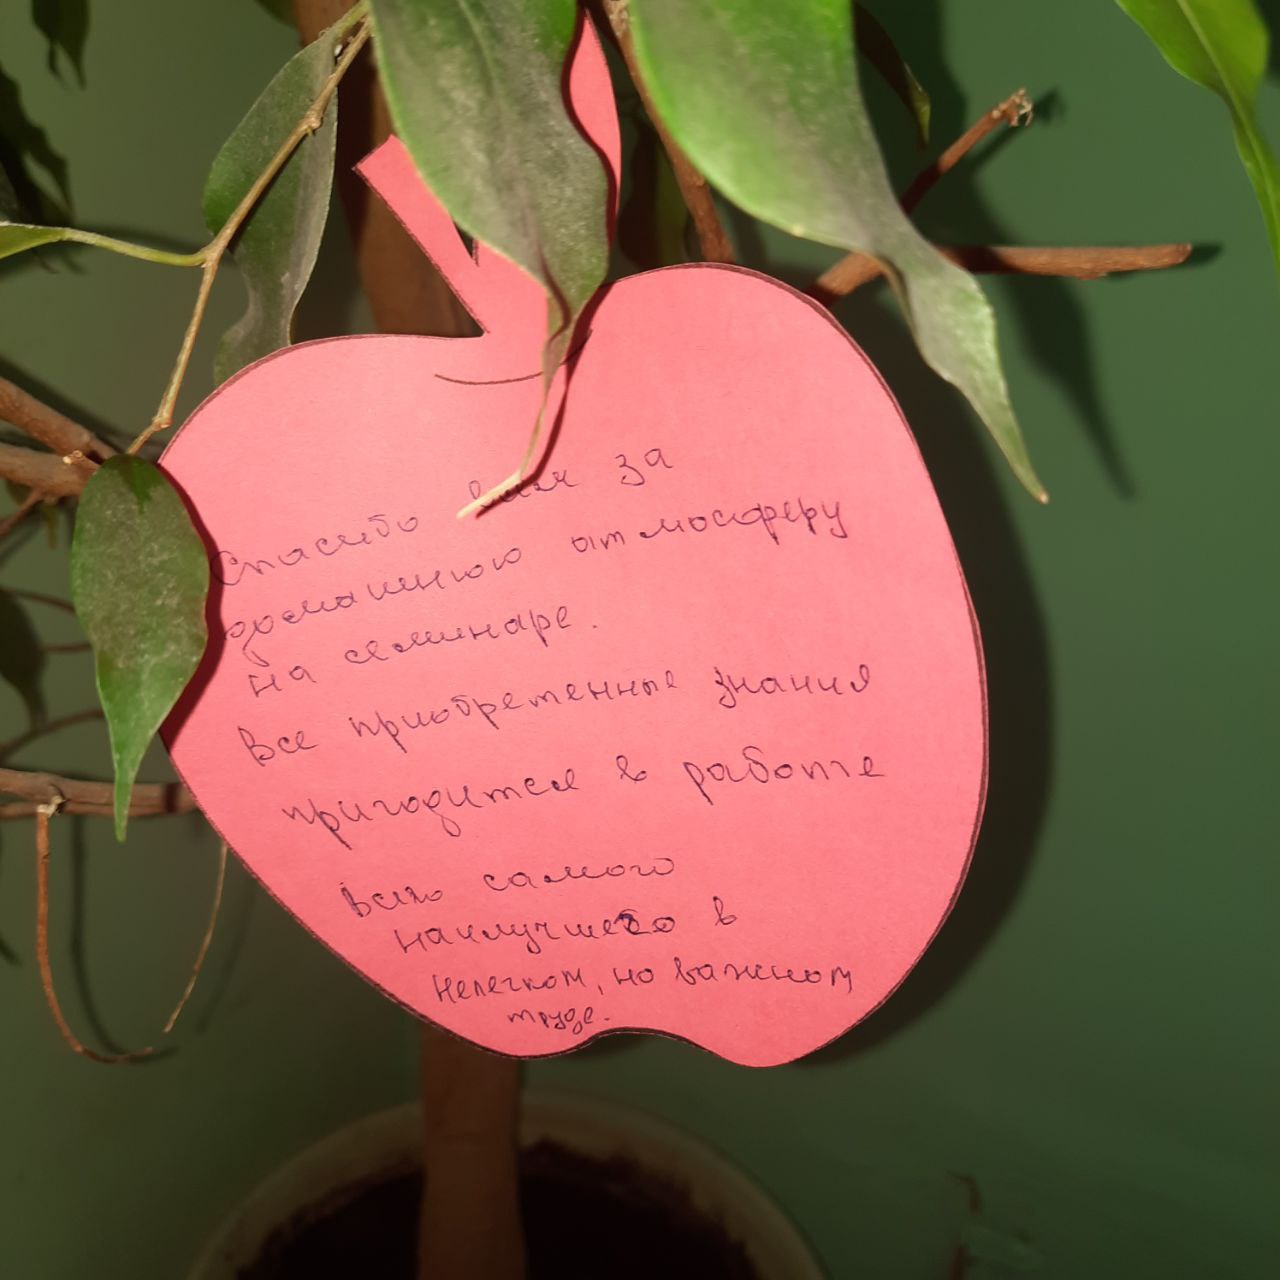 Спасибо вам за
домашнюю атмосферу
на семинаре.
Все приобретенные знания
пригодится в работе
Всего самого
наилучшего в
нелегком, но важном
труде.